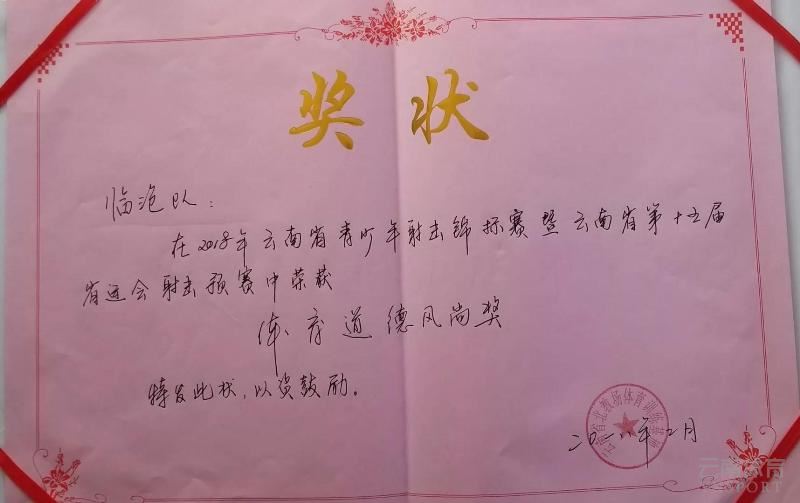 奖状
临沧队：
在2018年云南省青少年射击锦标赛暨云南省第十五届
省运会射击预赛中荣获
体育道德风尚奖
特发此状，以资鼓励。
云南省北教场体育训练基地
二〇一八年二月
云南体育
SPORT